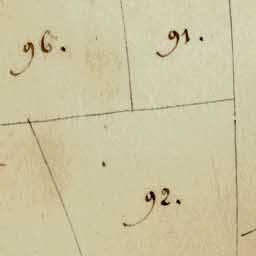 96.
91.
92.